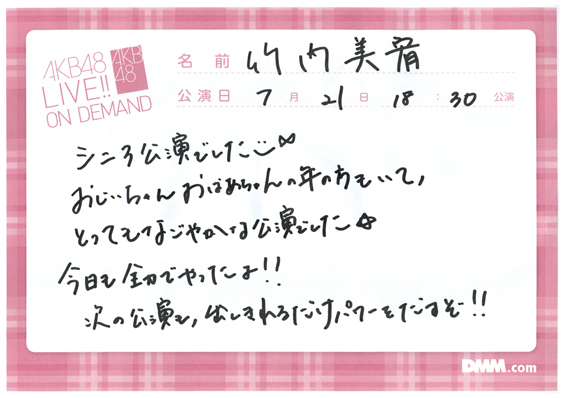 AKB48
LIVE!!
ON DEMAND
AKB
48
名前 竹内美宥
公演日 7月21日 18:30公演
シニア公演でした
おじいちゃんおばあちゃんの年の方もいて、
とってもなごやかな公演でした
今日も全力でやったよ!!
次の公演も、出しきれるだけパワーをだすぞ!!
DMM.com